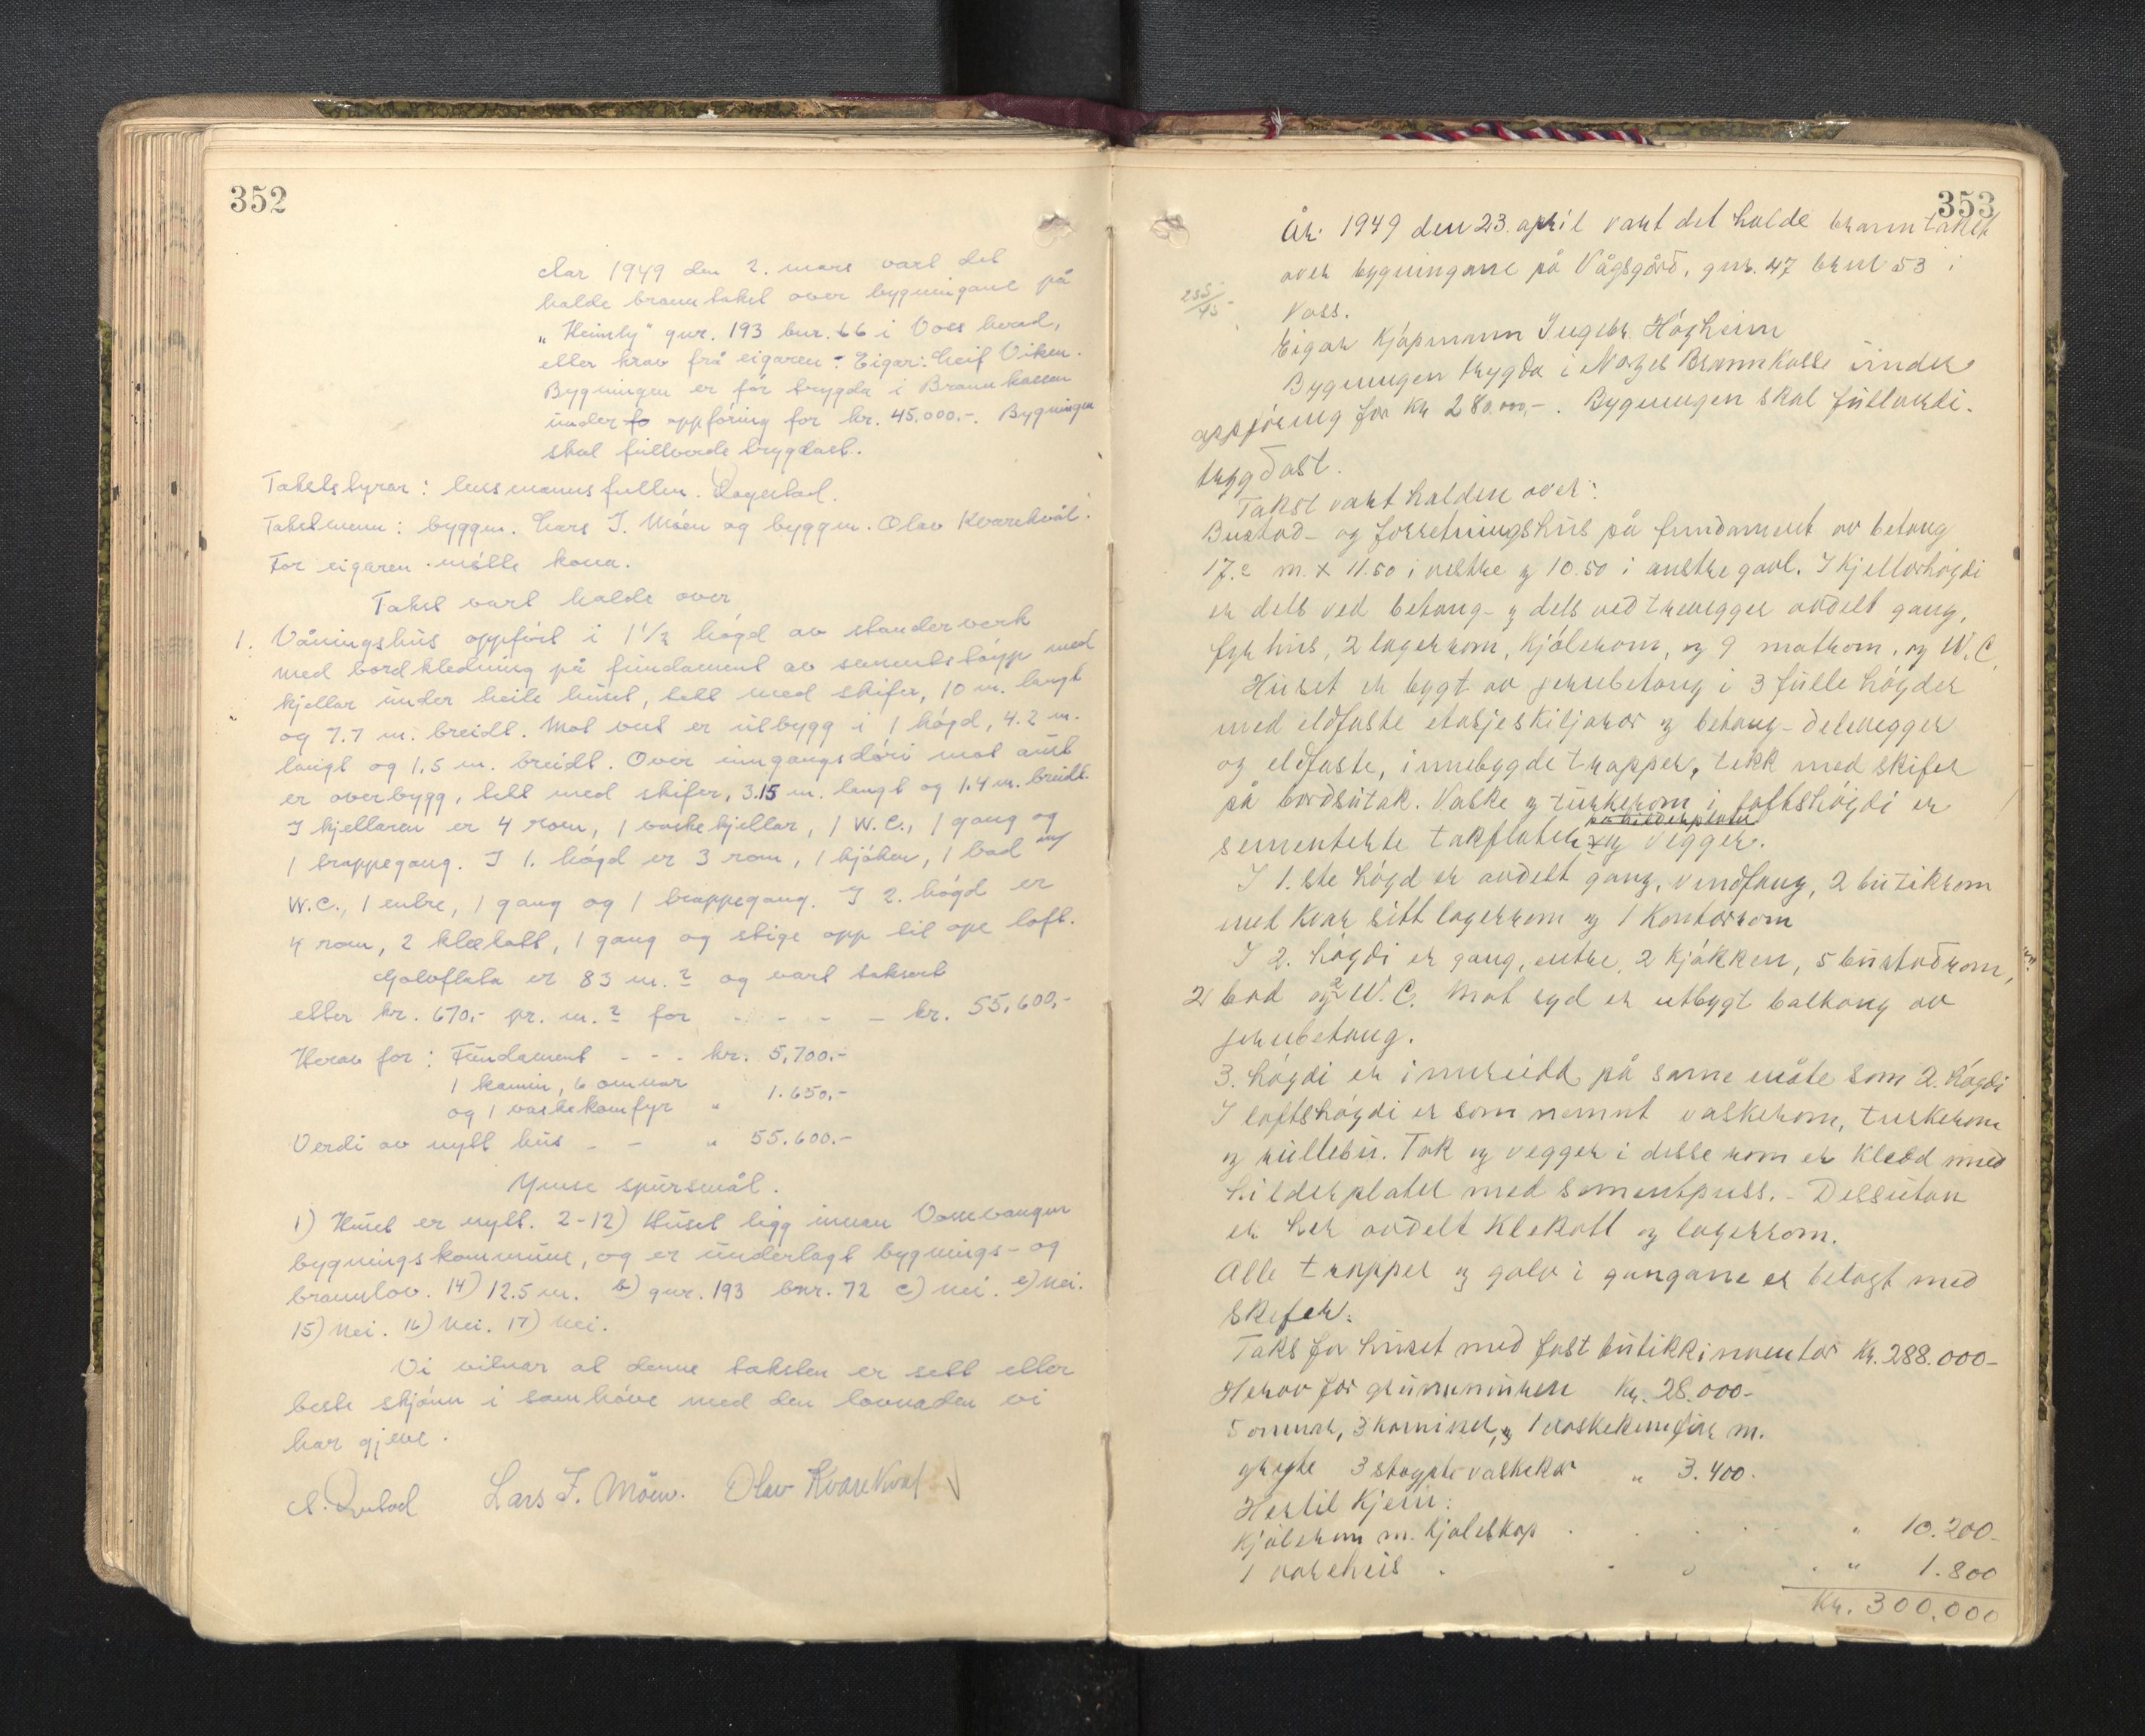 352
Aar 1949 den 2. mars vart det
halde branntakst over bygningane på
"Heimly" gnr. 193 bnr. 66 i Voss herad,
etter krav frå eigaren. Eigar: Leif Viken.
Bygningen er før trygda i Brannkassen
under oppføring for kr. 45.000.-. Bygningen
skal fullverde trygdast.
Takststyrar: lensmannsfullm.
Takstmenn: byggm. Lars J. Møen og byggm. Olav Kvarekvål.
For eigaren møtte kona.
Takst vart halde over
1. Våningshus oppført i 1 1/2 høgd av standerverk
med bordkledning på fundament av sementstøyp med
kjellar under heile huset, tett med skifer, 10 m. langt
og 7.7 m. breidt. Mot vest er utbygg i 1 høgd, 4.2 m.
langt og 1.5 m. breidt. Over inngangsdøri mot aust
er overbygg, tett med skifer, 3.15 m. langt og 1.4 m. breidt.
I kjellaren er 4 rom, 1 vaskekjellar, 1 W.C., 1 gang og
1 trappegang. I 1. høgd er 3 rom, 1 kjøken, 1 bad m/
W.C., 1 entre, 1 gang og 1 trappegang. I 2. høgd er
4 rom, 2 klekott, 1 gang og stige opp til ope loft.
Golvflata er 83 m.2 og vart taksert
etter kr. 670,- pr. m.2 for - - - - kr. 55,600,-
Herav for: Fundament - - - kr. 5,700.-
1 kamin, 6 omnar
og 1 vaskekomfyr " 1.650,-
Verdi av nytt hus - - " 55.600.-
Ymse spursmål.
1) Huset er nytt. 2-12) Huset ligg innan Vossevangen
bygningskommune, og er underlagt bygnings- og
brannlov. 14) 12.5 m. b) gnr. 193 bnr. 72 c) nei. e) Nei.
15) Nei. 16) Nei. 17) Nei.
Vi vitnar at denne taksten er sett etter
beste skjønn i samhøve med den lovnaden vi
har gjeve.
Lars J. Møen. Olav Kvarekval
353
År 1949 den 23. april vart det halde branntakst
over bygningane på Vågsgård, gnr. 47 bnr 53 i
Voss.
Eigar Kjøpmann Ingebr. Høgheim
Bygningen trygda i Norges Brannkasse under
oppføring for kr 280.000,-. Bygningen skal fullverdi-
trygdast.
Takst vart halden over:
Bustad- og forretningshus på fundament av betong
17.2 m. x 11.50 i vestre og 10.50 i austre gavl. I kjellarhøgdi
er dels ved betong- og dels ved trevegger avdelt gang,
fyrhus, 2 lagerrom, kjølerom, og 9 matrom, og W.C.
Huset er bygt av jernbetong i 3 fulle høgder
med eldfaste etasjeskiljarar og betong-delevegger
og eldfaste, innebygde trapper, tekk med skifer
på bordsutak. Vaske og turkerom i loftshøgdi er
på hilderplater
sementerte takplater og vegger.
I 1.ste høgd er avdelt gang, vindfang, 2 butikkrom
med kvar sitt lagerrom og 1 kontorrom
I 2. høgdi er gang, entre, 2 kjøkken, 5 bustadrom,
2 bad og 2 W.C. Mot syd er utbygt balkong av
jernbetong.
3. høgdi er innreidd på same måte som 2. høgdi
I loftshøgdi er som nemnt vaskerom, turkerom
og rullebu. Tak og vegger i desse rom er kledd med
hilderplater med sementpuss. - Dessutan
er her avdelt klekott og lagerrom.
Alle trapper og golv i gangane er belagt med
skifer.
Takst for huset med fast butikkinventar kr. 288.000-
Herav for grunnmuren kr. 28.000-
5 omnar, 3 kaminer, og 1 vaskekomfyr m.
gryte 3 støypte vaskekar " 3.400.
Hertil kjem:
Kjølerom m. kjøleskap . . . . " 10.200-
1 varehus . . . . " 1.800
Kr. 300.000